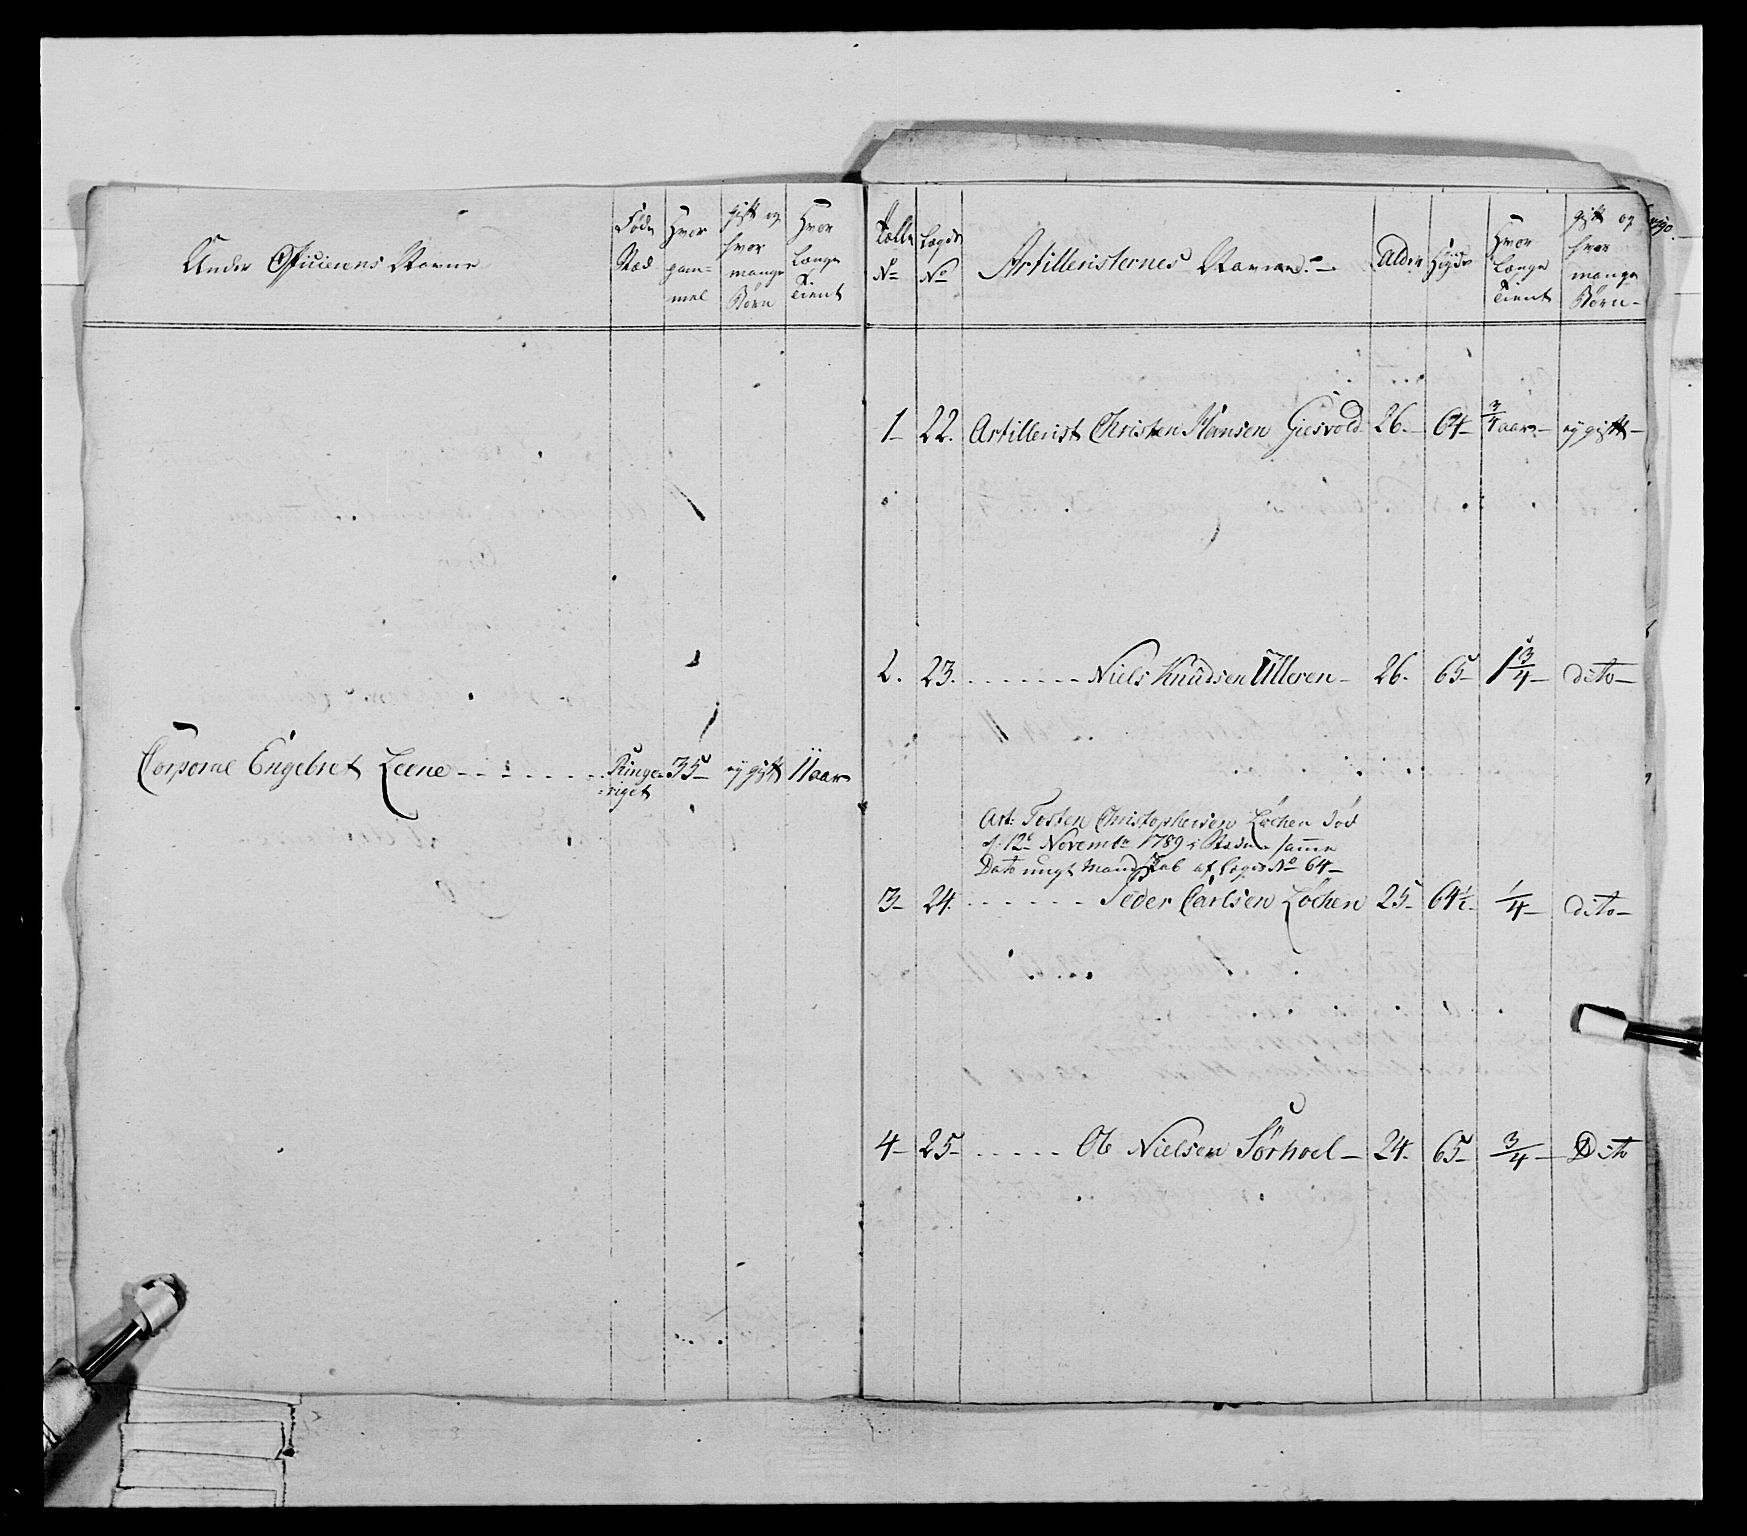 Under Officierens Navne
Føde Stæd
Hvor gam-mel
gift og hvor mange Børn
Hvor Længe Tient
Corporal Engebret Leene - - - - - - - Ringe-riget 35 ey gift 11 aar
Tolle No
Lægds No
Artilleristernes Navne. -
Alder
Høyde
Hvor Længe Tient
gift og hvor mange Børn -
1 - 22. Artillerist Christen Hansen Giesvold 26 - 64 - 3/4 aar - ey gift -
2. 23. - - - - - - - Niels Knudsen Ulleren - 26. 65 - 1 3/4 - dito -
Art: Tosten Christophersen Løchen død
d: 12te Novembr 1789 i Stæden samme
Dato ungt Mandskab af Lægd No 64 -
3 - 24. - - - - - - Peder Carlsen Løchen 25 - 64 1/2 - 1/4 - dito -
4 - 25 - - - - - - Ole Nielsen Sørhoel - 24. 65 - 3/4 - Dito